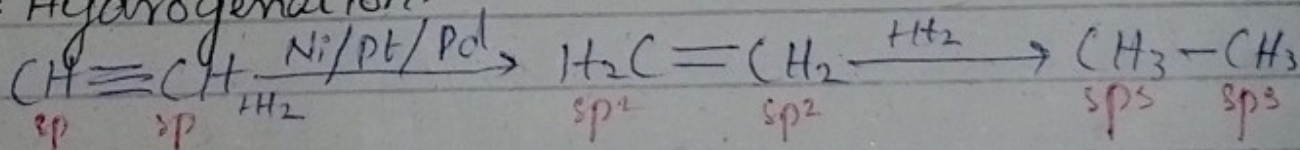 Hydrogenation
CH≡CH Ni/Pt/Pd +H₂ → H₂C=CH₂ +H₂ → CH₃-CH₃
sp sp sp² sp² sp³ sp³